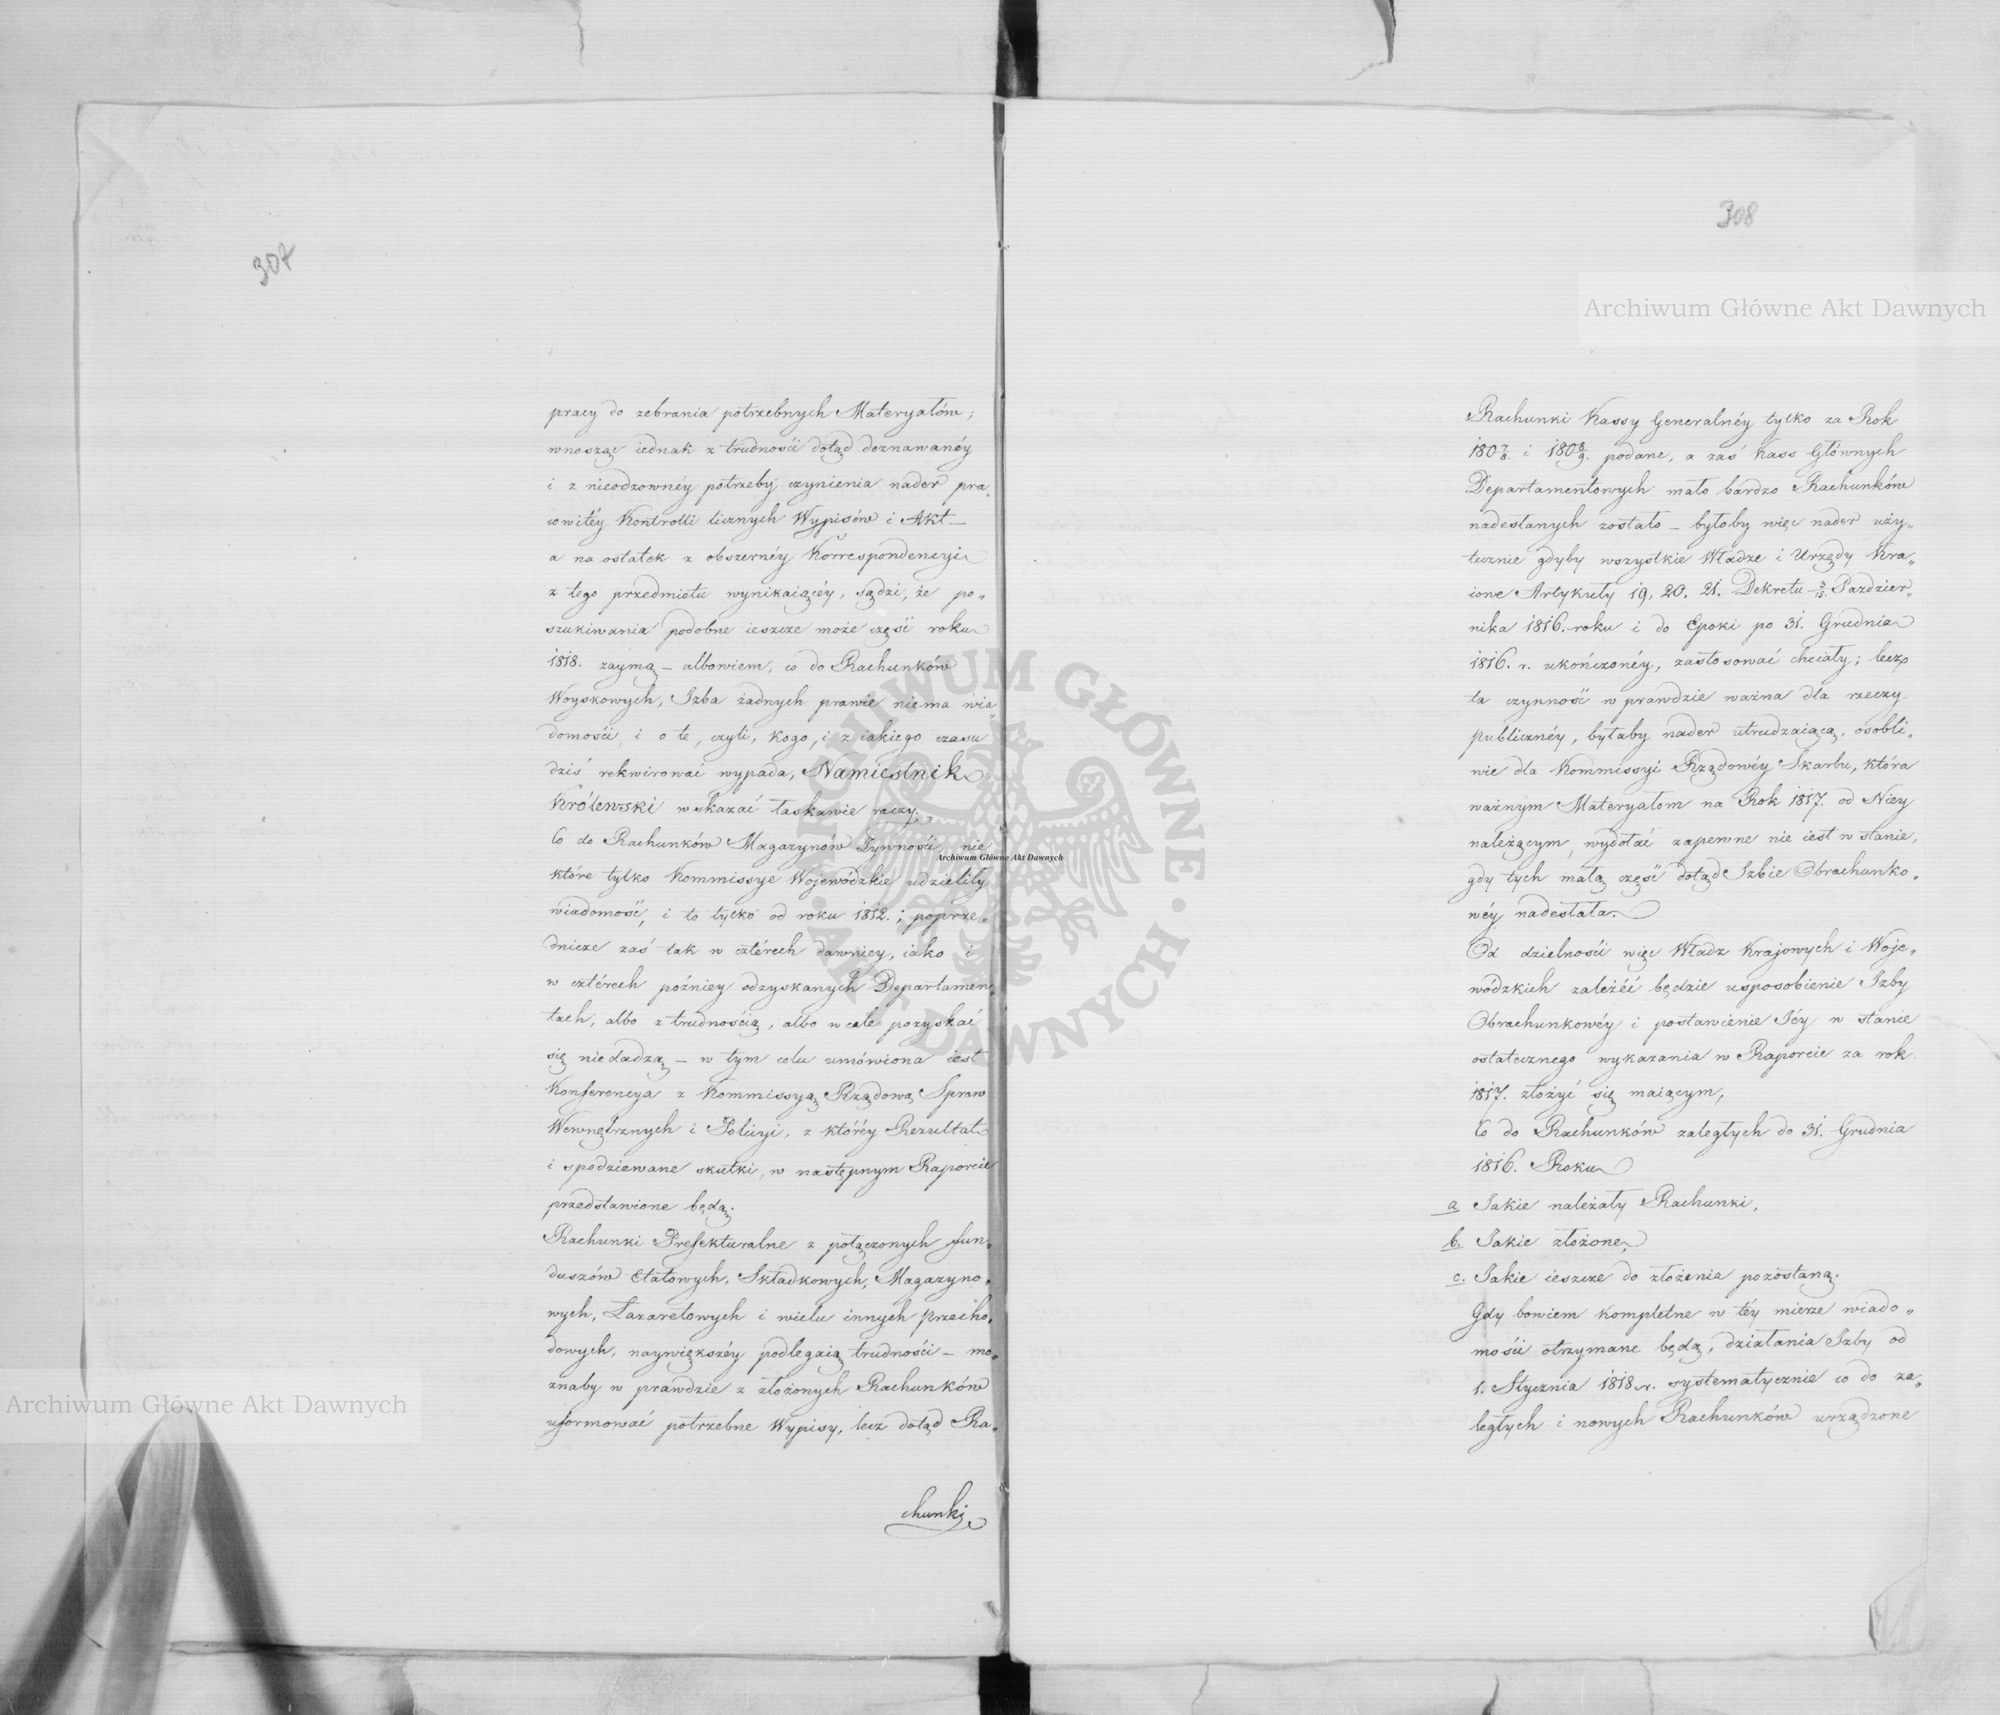 307
pracy do zebrania potrzebnych Materyałów;
wnosząc iednak z trudności dotąd doznawanéy
i z nieodzownéy potrzeby czynienia nader pra„
cowitéy Kontrolli licznych Wypisów i Akt —
a na ostatek z obszernéy Korrespondencyi
z tego przedmiotu wynikaiącéy, sądzi, że po„
szukiwania podobne ieszcze może część roku
1818. zaymą — albowiem, co do Rachunków
Woyskowych, Izba żadnych prawie niema wia„
domości, i o te, czyli, kogo, i z iakiego czasu
dziś rekwirować wypada, Namiestnik
Królewski wskazać łaskawie raczy.
Co do Rachunków Magazynów Żywności, nie
które tylko Kommissye Wojewódzkie udzieliły
wiadomość, i to tylko od roku 1812.; poprze„
dnicze zaś tak w cztérech dawniey, iako i
w cztérech późniey odzyskanych Departamen„
tach, albo z trudnością, albo wcale pozyskać
się niedadzą — w tym celu umówiona iest
Konferencya z Kommissyą Rządową Spraw
Wewnętrznych i Policyi, z któréy Rezultat
i spodziewane skutki, w następnym Raporcie
przedstawione będą.
Rachunki Prefekturalne z połączonych fun„
duszów Etatowych, Składkowych, Magazyno„
wych, Lazaretowych i wielu innych przecho„
dowych, naywiększéy podlegaią trudności — mo„
żnaby w prawdzie z złożonych Rachunków
uformować potrzebne Wypisy, lecz dotąd Ra„
chunki
308
Archiwum Główne Akt Dawnych
Rachunki Kassy Generalnéy tylko za Rok
1807/8. i 1808/9. podane, a zaś Kass Głównych
Departamentowych mało bardzo Rachunków
nadesłanych zostało — byłoby więc nader uży„
tecznie gdyby wszystkie Władze i Urzędy Kra„
iowe Artykuły 19, 20. 21. Dekretu 3/15. Paździer„
nika 1816. roku i do Epoki po 31. Grudnia
1816. r. ukończonéy, zastosować chciały; lecz
ta czynność w prawdzie ważna dla rzeczy
publicznéy, byłaby nader utrudzaiącą, osobli„
wie dla Kommissyi Rządowéy Skarbu, która
ważnym Materyałom na Rok 1817. od Niey
należącym, wydołać zapewne nie iest w stanie,
gdy tych małą część dotąd Izbie Obrachunko„
wéy nadesłała.
Od dzielności więc Władz Krajowych i Woje„
wódzkich zależéć będzie usposobienie Izby
Obrachunkowéy i postawienie Jéy w stanie
ostatecznego wykazania w Raporcie za rok
1817. złożyć się maiącym,
Co do Rachunków zaległych do 31. Grudnia
1816. Roku
a Jakie należały Rachunki,
b. Jakie złożone,
c. Jakie ieszcze do złożenia pozostaną.
Gdy bowiem kompletne w téy mierze wiado„
mości otrzymane będą, działania Izby od
1. Stycznia 1818. r. systematycznie co do za„
ległych i nowych Rachunków urządzone
Archiwum Główne Akt Dawnych
Archiwum Główne Akt Dawnych
ARCHIWUM GŁÓWNE · AKT DAWNYCH ·